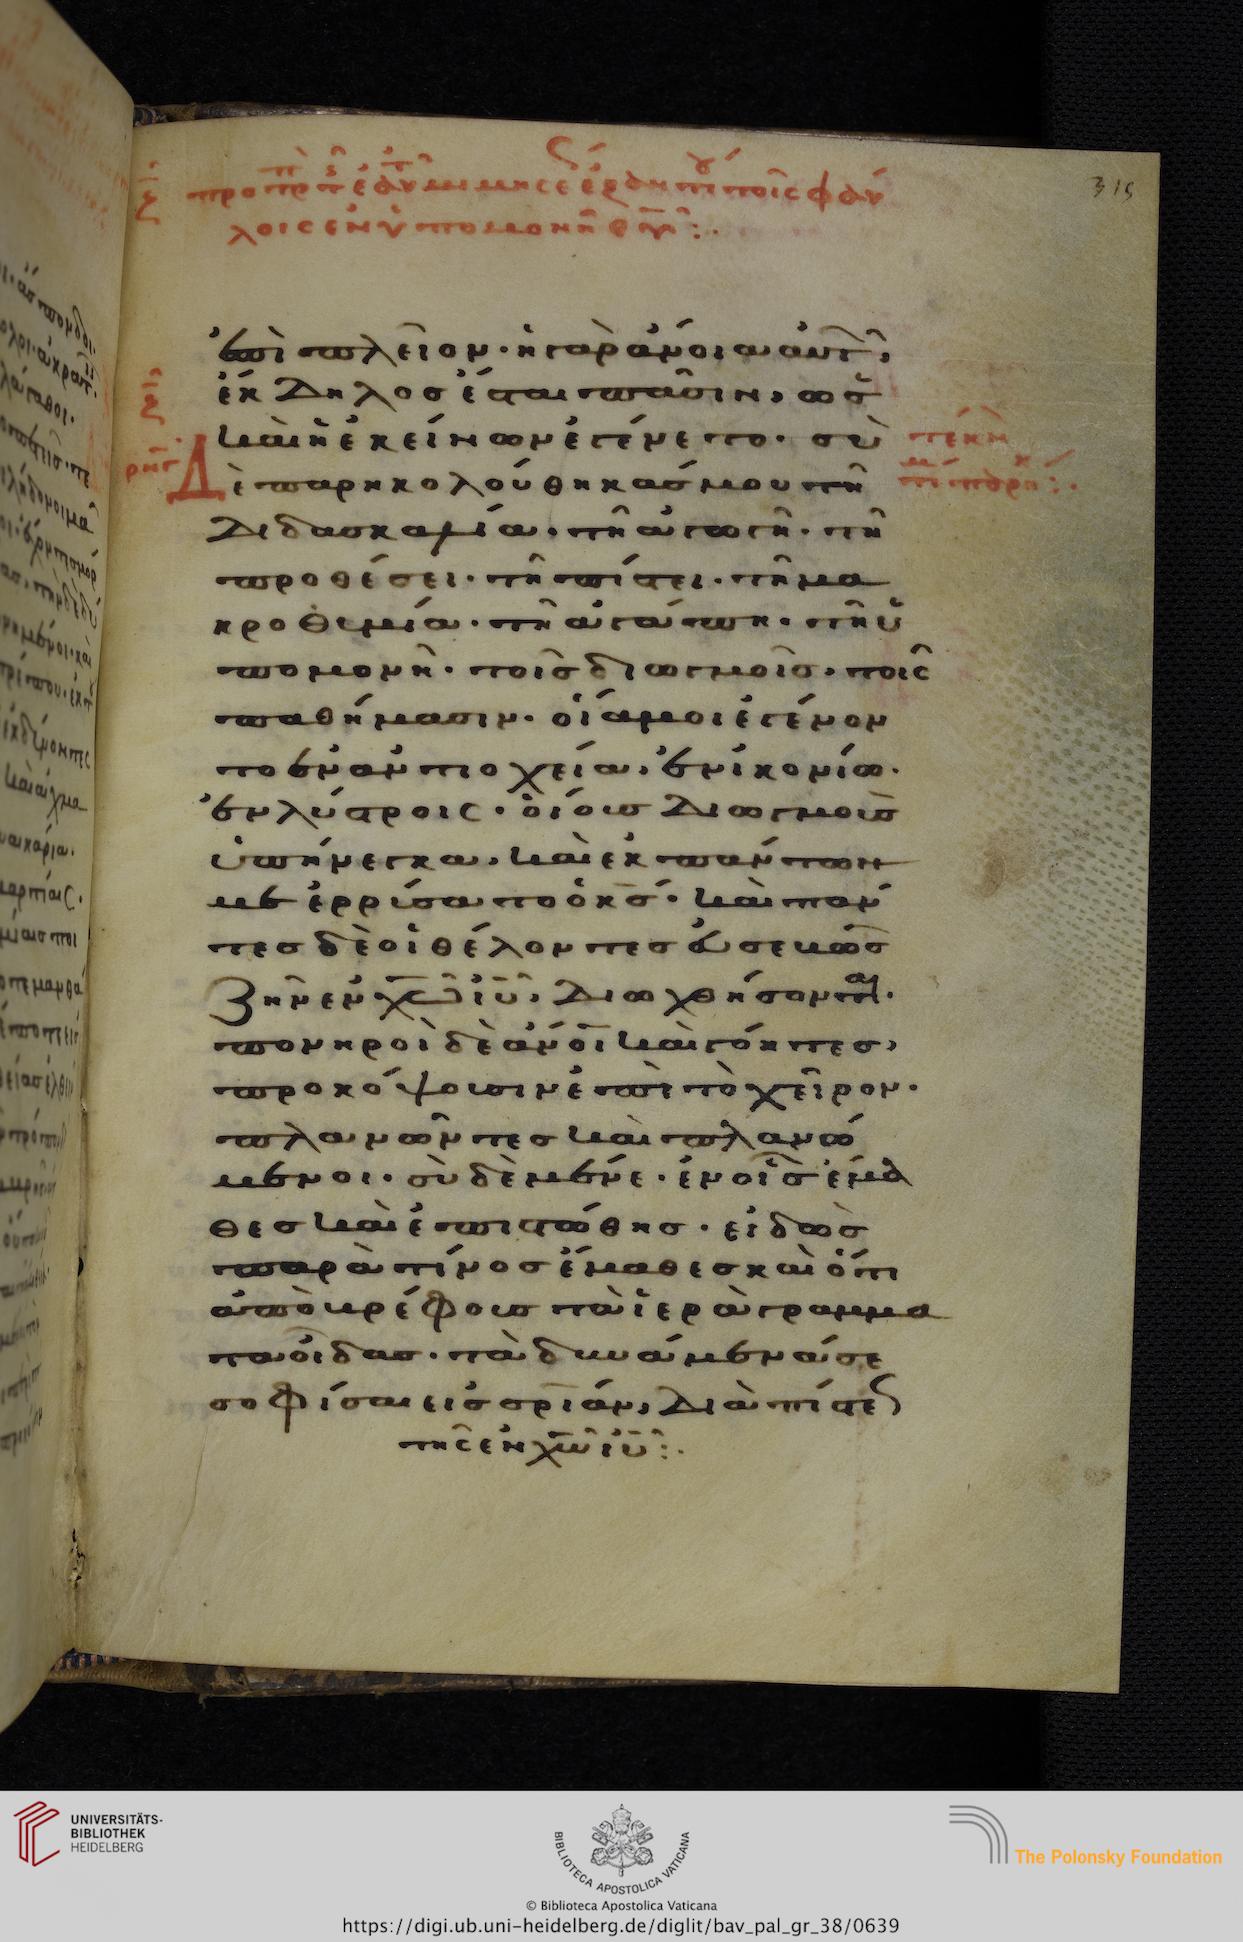 315
λοις ἐν ὑπομονῆ
ἐπὶ πλεῖον· ἡ γὰρ ἄνοια αὐτῶν,
ἔκδηλος ἔσται πᾶσιν, ὡς
καὶ ἡ ἐκείνων ἐγένετο· σὺ
δὲ παρηκολούθηκάς μου τῆ
διδασκαλία· τῆ ἀγωγῆ· τῆ
προθέσει· τῆ πίστει· τῆ μα
κροθυμία· τῆ ἀγάπη· τῆ ὑ
πομονῆ· τοῖς διωγμοῖς, τοῖς
παθήμασιν· οἷά μοι ἐγένον
το ἐν ἀντιοχεία, ἐν ἰκονίω·
ἐν λύστροις· οἵους διωγμοὺς
ὑπήνεγκα, καὶ ἐκ πάντων
με ἐρρύσατο ὁ κς· καὶ πάν
τες δὲ οἱ θέλοντες εὐσεβῶς
ζῆν ἐν χω ιυ, διωχθήσονται·
πονηροὶ δὲ ἄνοι καὶ γόητες,
προκόψουσιν ἐπὶ τὸ χεῖρον·
πλανῶντες καὶ πλανώ
μενοι· σὺ δὲ μένε· ἐν οἷς ἔμα
θες καὶ ἐπιστώθης· εἰδὼς
παρὰ τίνος ἔμαθες καὶ ὅτι
ἀπὸ βρέφους τὰ ἱερὰ γράμμα
τα οἶδας· τὰ δυνάμενά σε
σοφίσαι εἰς σρίαν, διὰ πίστεως
τῆς ἐν χω ιυ:·
UNIVERSITÄTS-
BIBLIOTHEK
HEIDELBERG
BIBLIOTECA APOSTOLICA VATICANA
The Polonsky Foundation
© Biblioteca Apostolica Vaticana
https://digi.ub.uni-heidelberg.de/diglit/bav_pal_gr_38/0639